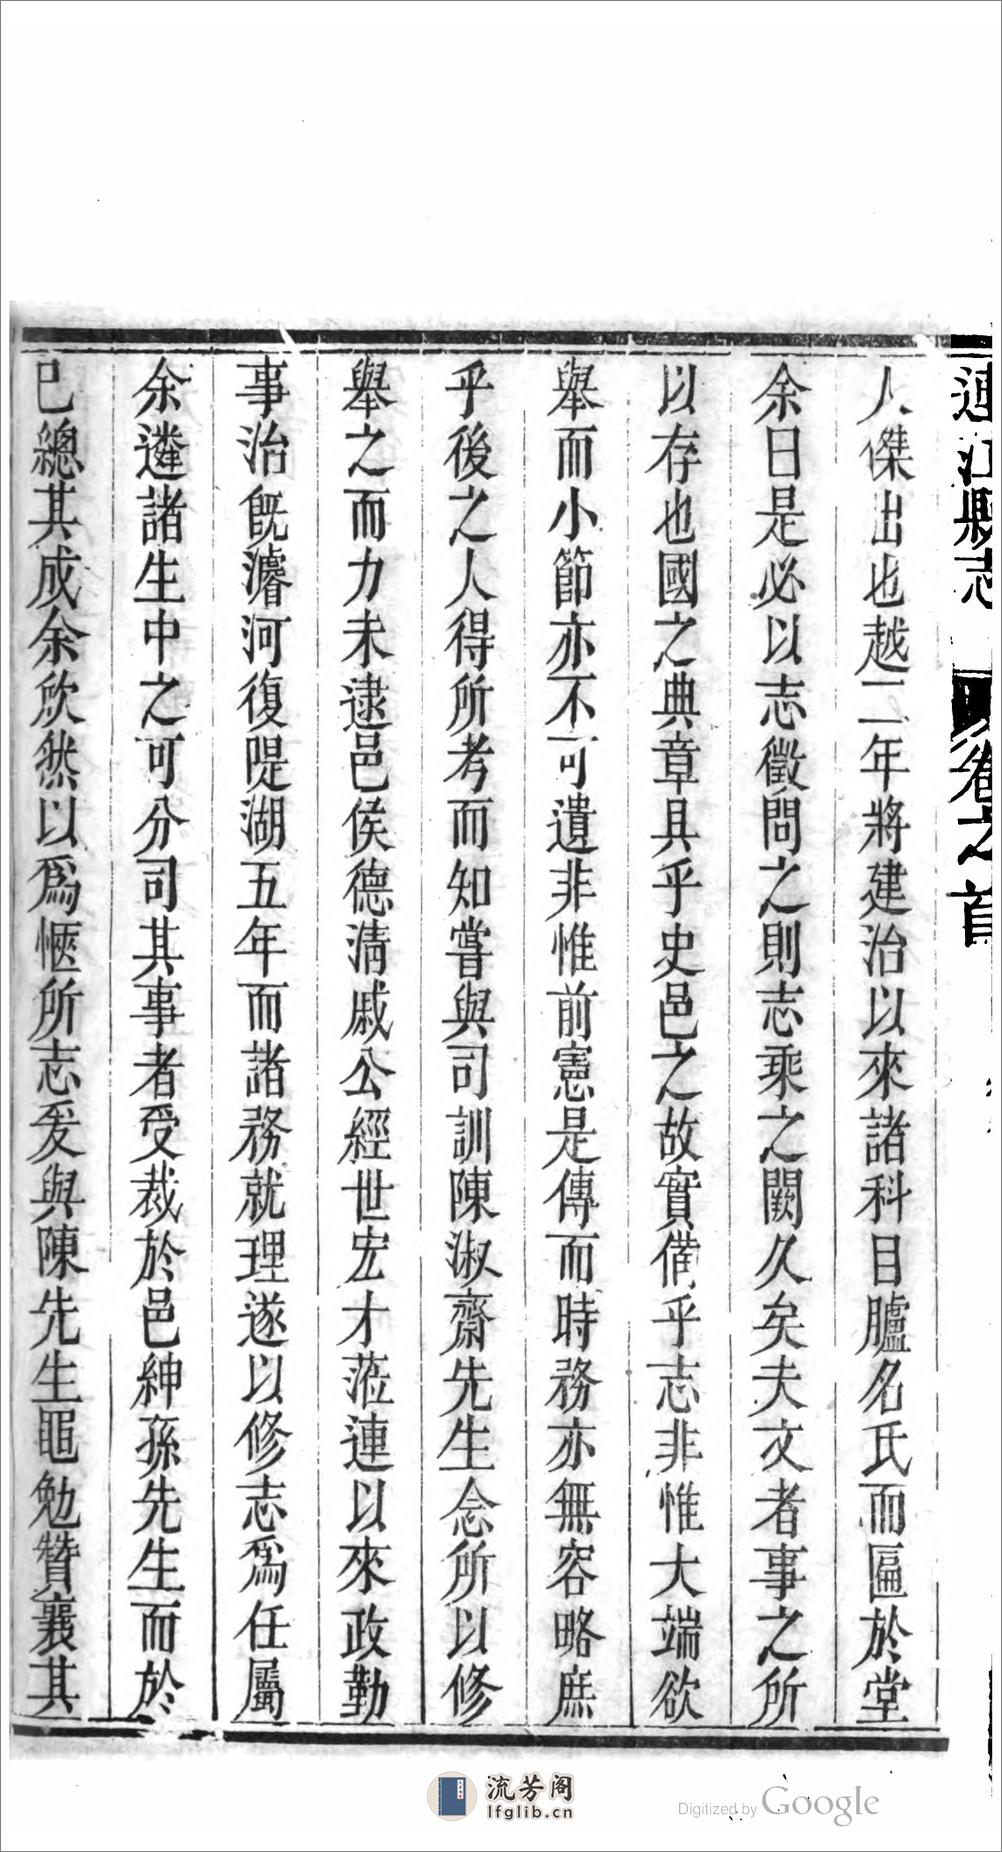 連江縣志 卷之首
人傑出也越二年將建治以來諸科目臚名氏而匾於堂
余曰是必以志徵問之則志乘之闕久矣夫文者事之所
以存也國之典章具乎史邑之故實備乎志非惟大端欲
舉而小節亦不可遺非惟前憲是傳而時務亦無容略庶
乎後之人得所考而知嘗與司訓陳淑齋先生念所以修
舉之而力未逮邑侯德清戚公經世宏才蒞連以來政勤
事治旣濬河復隄湖五年而諸務就理遂以修志爲任屬
余遴諸生中之可分司其事者受裁於邑紳孫先生而於
已總其成余欣然以爲愜所志爰與陳先生黽勉贊襄其
流芳阁
lfglib.cn
Digitized by Google